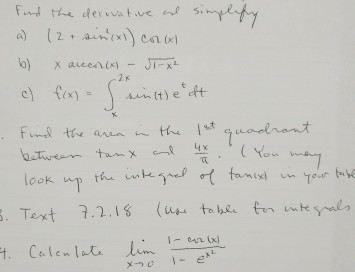 Find the derivative and simplify
a) (2 + sin²(x)) cos(x)
b) x arccos(x) - √1-x²
c) f(x) = ∫ₓ²ˣ sin(t) eᵗ dt
. Find the area in the 1st quadrant
between tan x and 4x/π. (You may
look up the integral of tan(x) in your
3. Text 7.2.18 (use table for integrals
4. Calculate lim x→0 1 - cos(x) / 1 - eˣ²